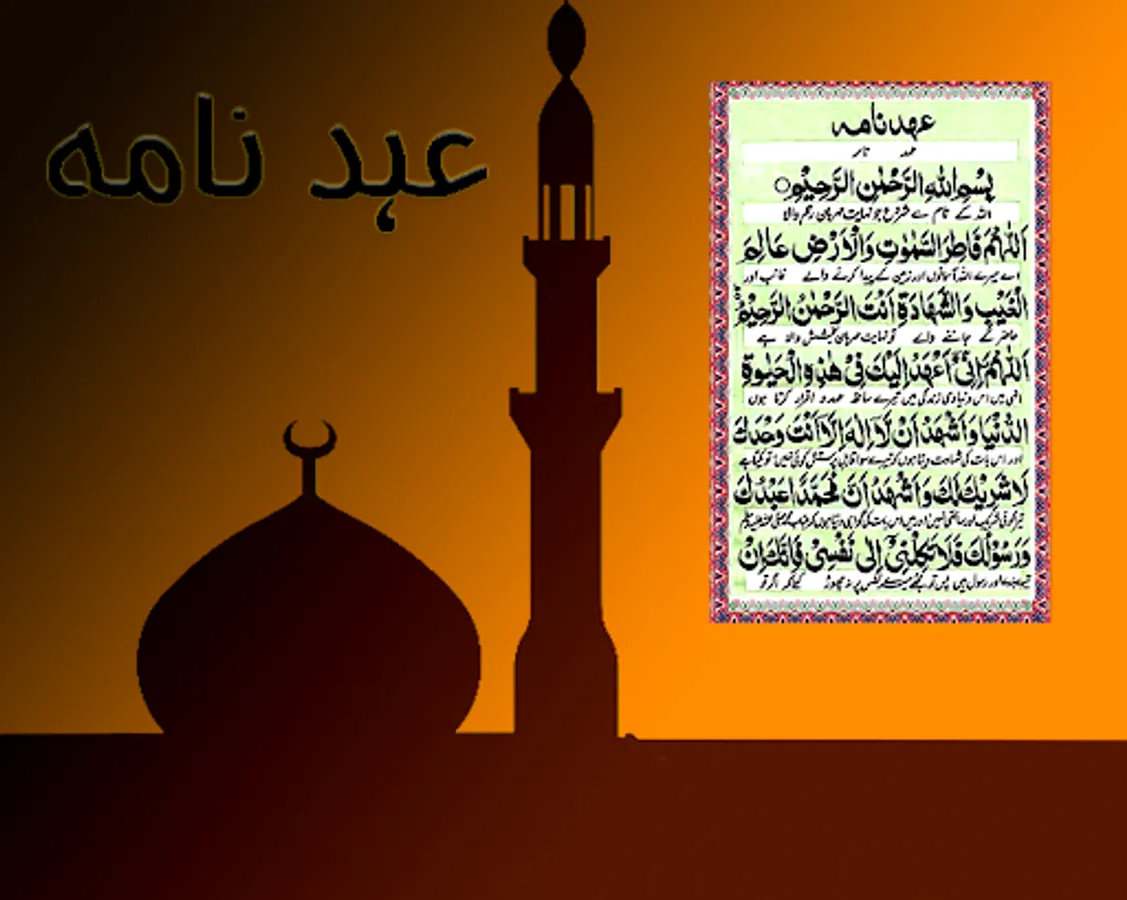 عہد نامہ
عهدنامہ
عہد نامہ
بِسْمِ اللهِ الرَّحْمٰنِ الرَّحِيْمِ
اللہ کے نام سے شروع جو نہایت مہربان رحم والا
اَللّٰهُمَّ فَاطِرَ السَّمٰوٰتِ وَالْاَرْضِ عَالِمَ
اے میرے اللہ آسمانوں اور زمین کے پیدا کرنے والے غائب اور
الْغَيْبِ وَالشَّهَادَةِ اَنْتَ الرَّحْمٰنُ الرَّحِيْمُ
حاضر کے جاننے والے تو نہایت مہربان بخشش والا ہے
اَللّٰهُمَّ اِنِّىْ اَعْهَدُ اِلَيْكَ فِىْ هٰذِهِ الْحَيٰوةِ
الٰہی میں اس دنیاوی زندگی میں تیرے ساتھ عہد و اقرار کرتا ہوں
الدُّنْيَا وَاَشْهَدُ اَنْ لَّا اِلٰهَ اِلَّا اَنْتَ وَحْدَكَ
اور اس بات کی شہادت دیتا ہوں کہ تیرے سوا قابل پرستش کوئی نہیں تو یکتا ہے
لَا شَرِيْكَ لَكَ وَاَشْهَدُ اَنَّ مُحَمَّدًا عَبْدُكَ
تیرا کوئی شریک اور ساتھی نہیں اور میں اس بات کی گواہی دیتا ہوں کہ
وَرَسُوْلُكَ فَلَا تَكِلْنِىْ اِلٰى نَفْسِىْ فَاِنَّكَ اِنْ
اور رسول ہیں پس تو مجھے میرے نفس پر نہ چھوڑ کیونکہ اگر تو